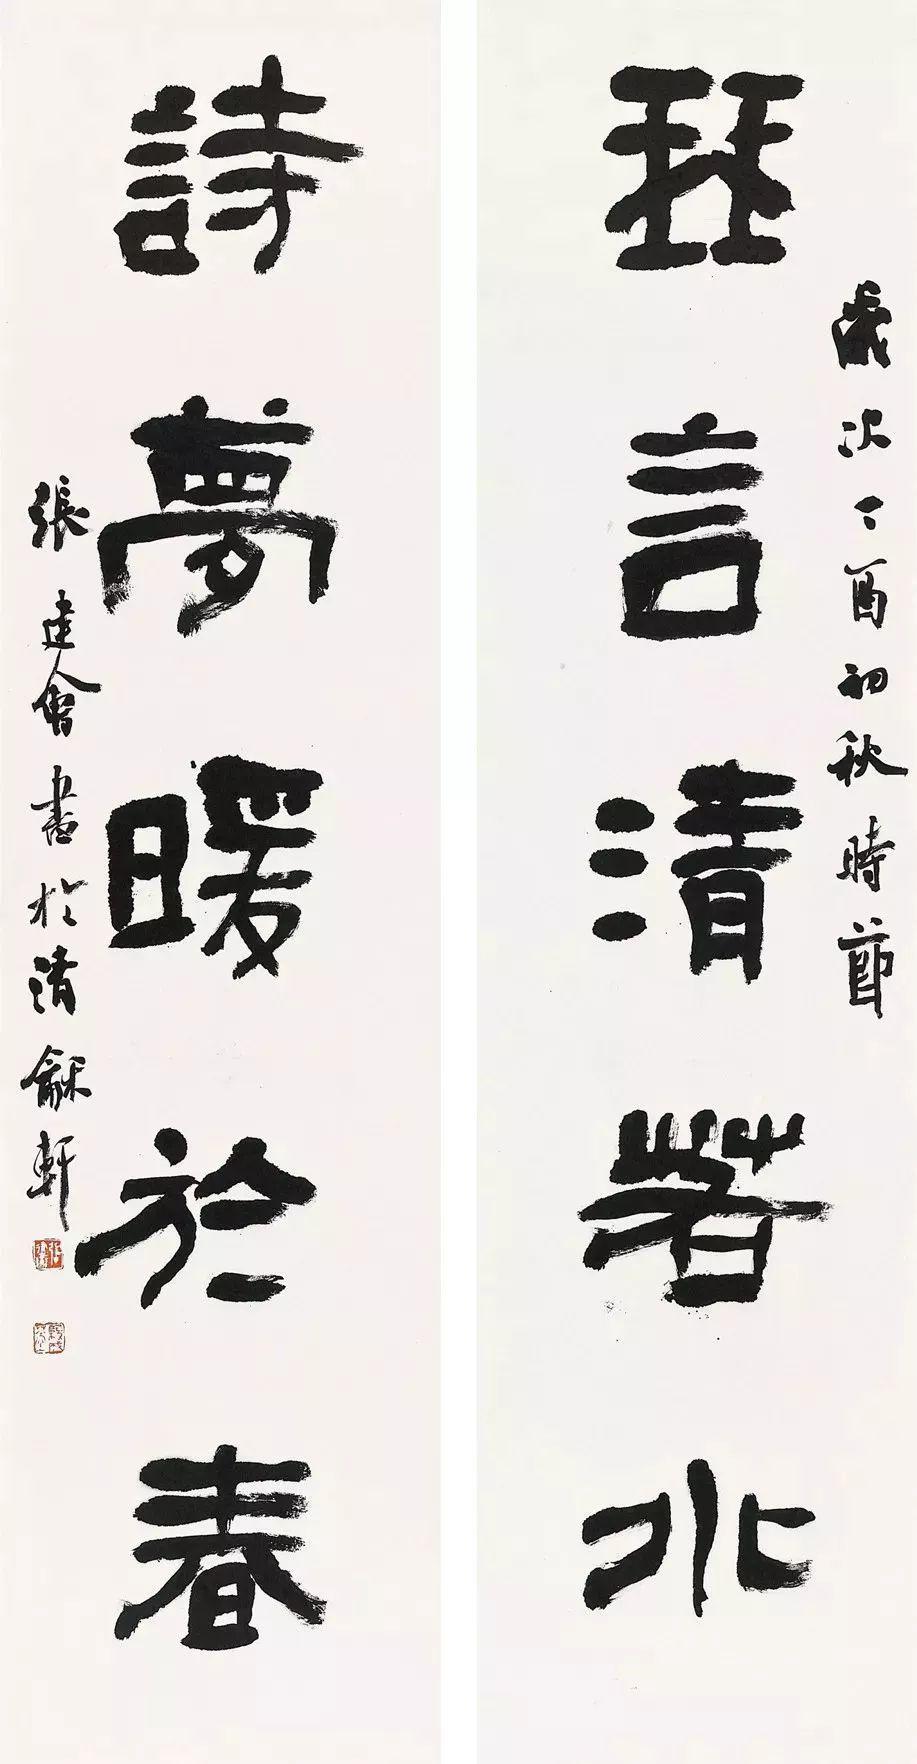 歲次丁酉初秋時節
琴言清若水
詩夢暖於春
張建會書於清龢軒